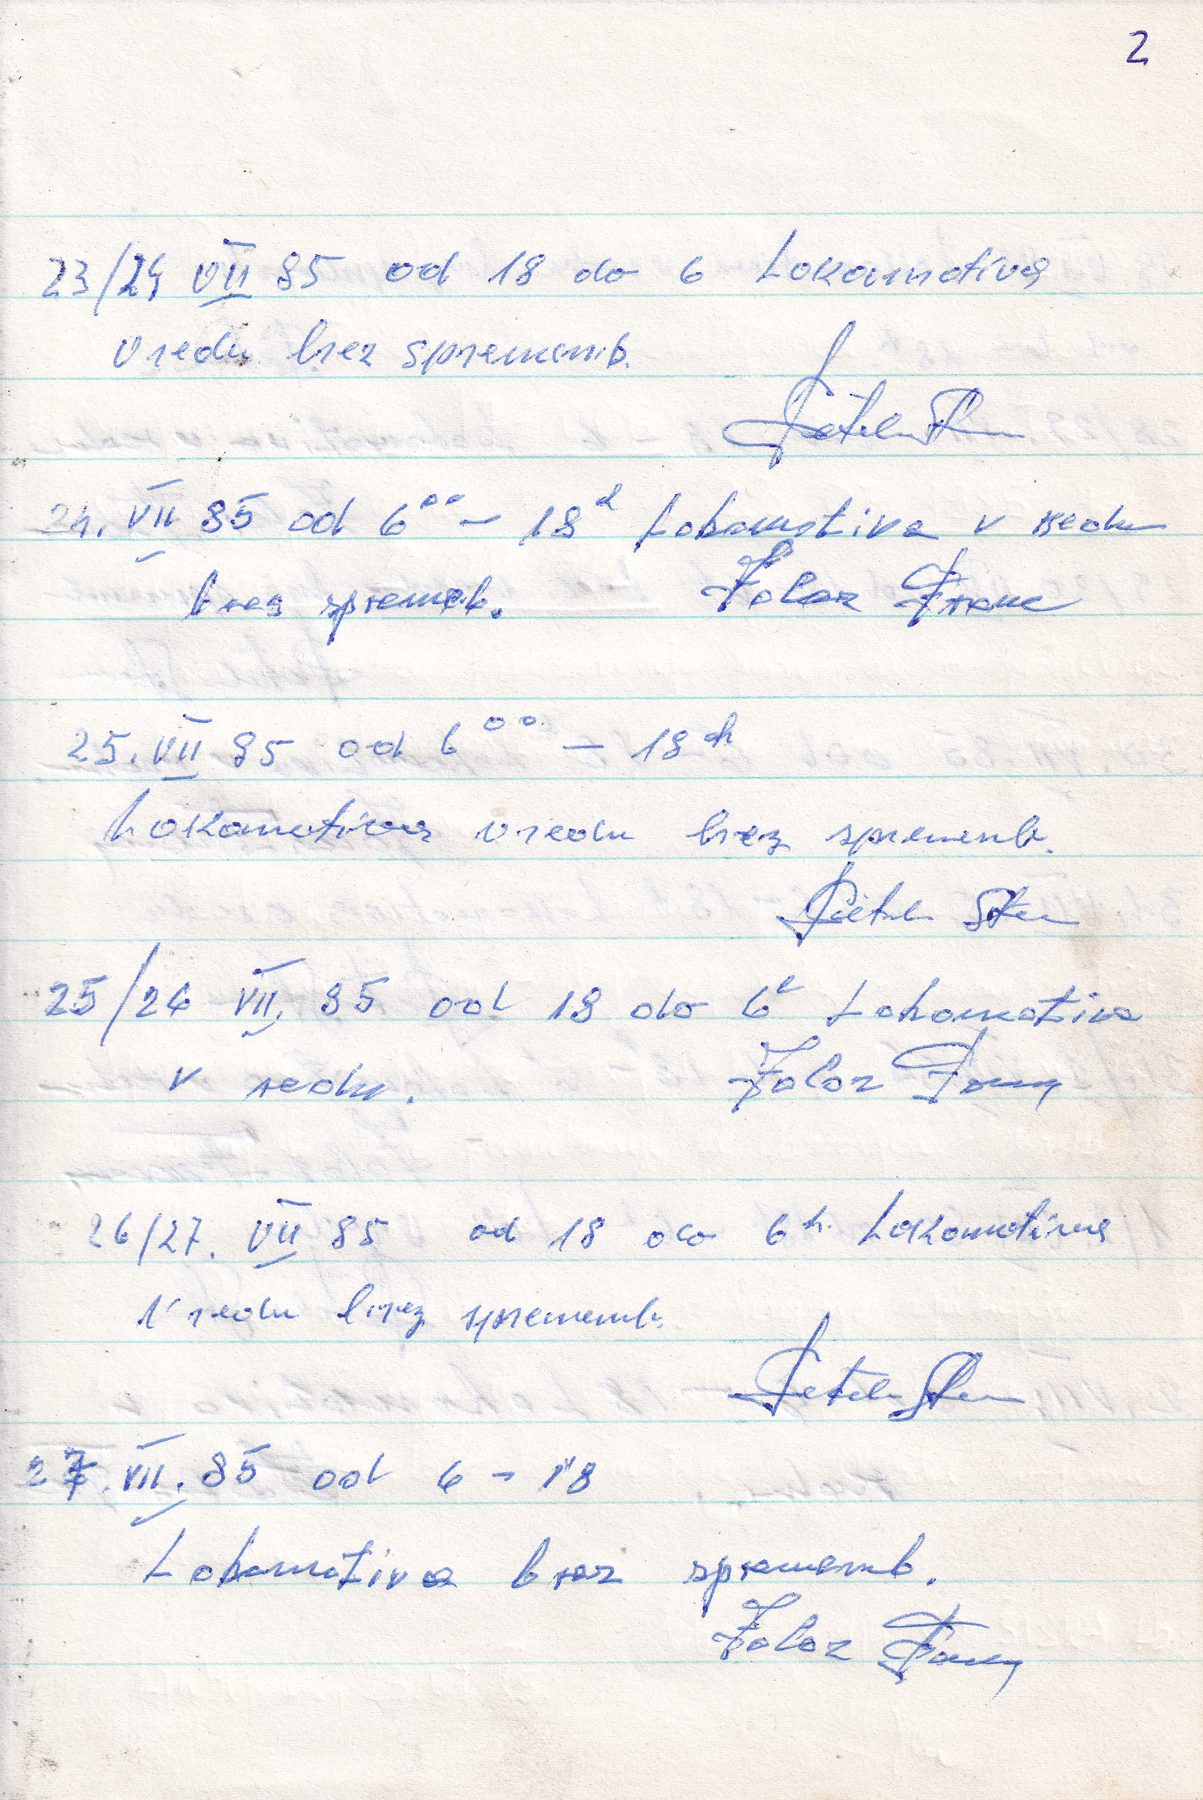 2
23/24 VII 85 od 18 do 6 Lokomotiva
v redu brez sprememb.
24. VII 85 od 6⁰⁰ – 18ʰ Lokomotiva v redu
brez spremeb. Zoloz Franc
25. VII 85 od 6⁰⁰ – 18ʰ
Lokomotiva v redu brez sprememb.
25/26 VII. 85 od 18 do 6ʰ Lokomotiva
v redu. Zoloz Franc
26/27. VII 85 od 18 do 6ʰ. Lokomotiva
V redu brez sprememb.
27. VII. 85 od 6 – 18
Lokomotiva brez sprememb.
Zoloz Franc